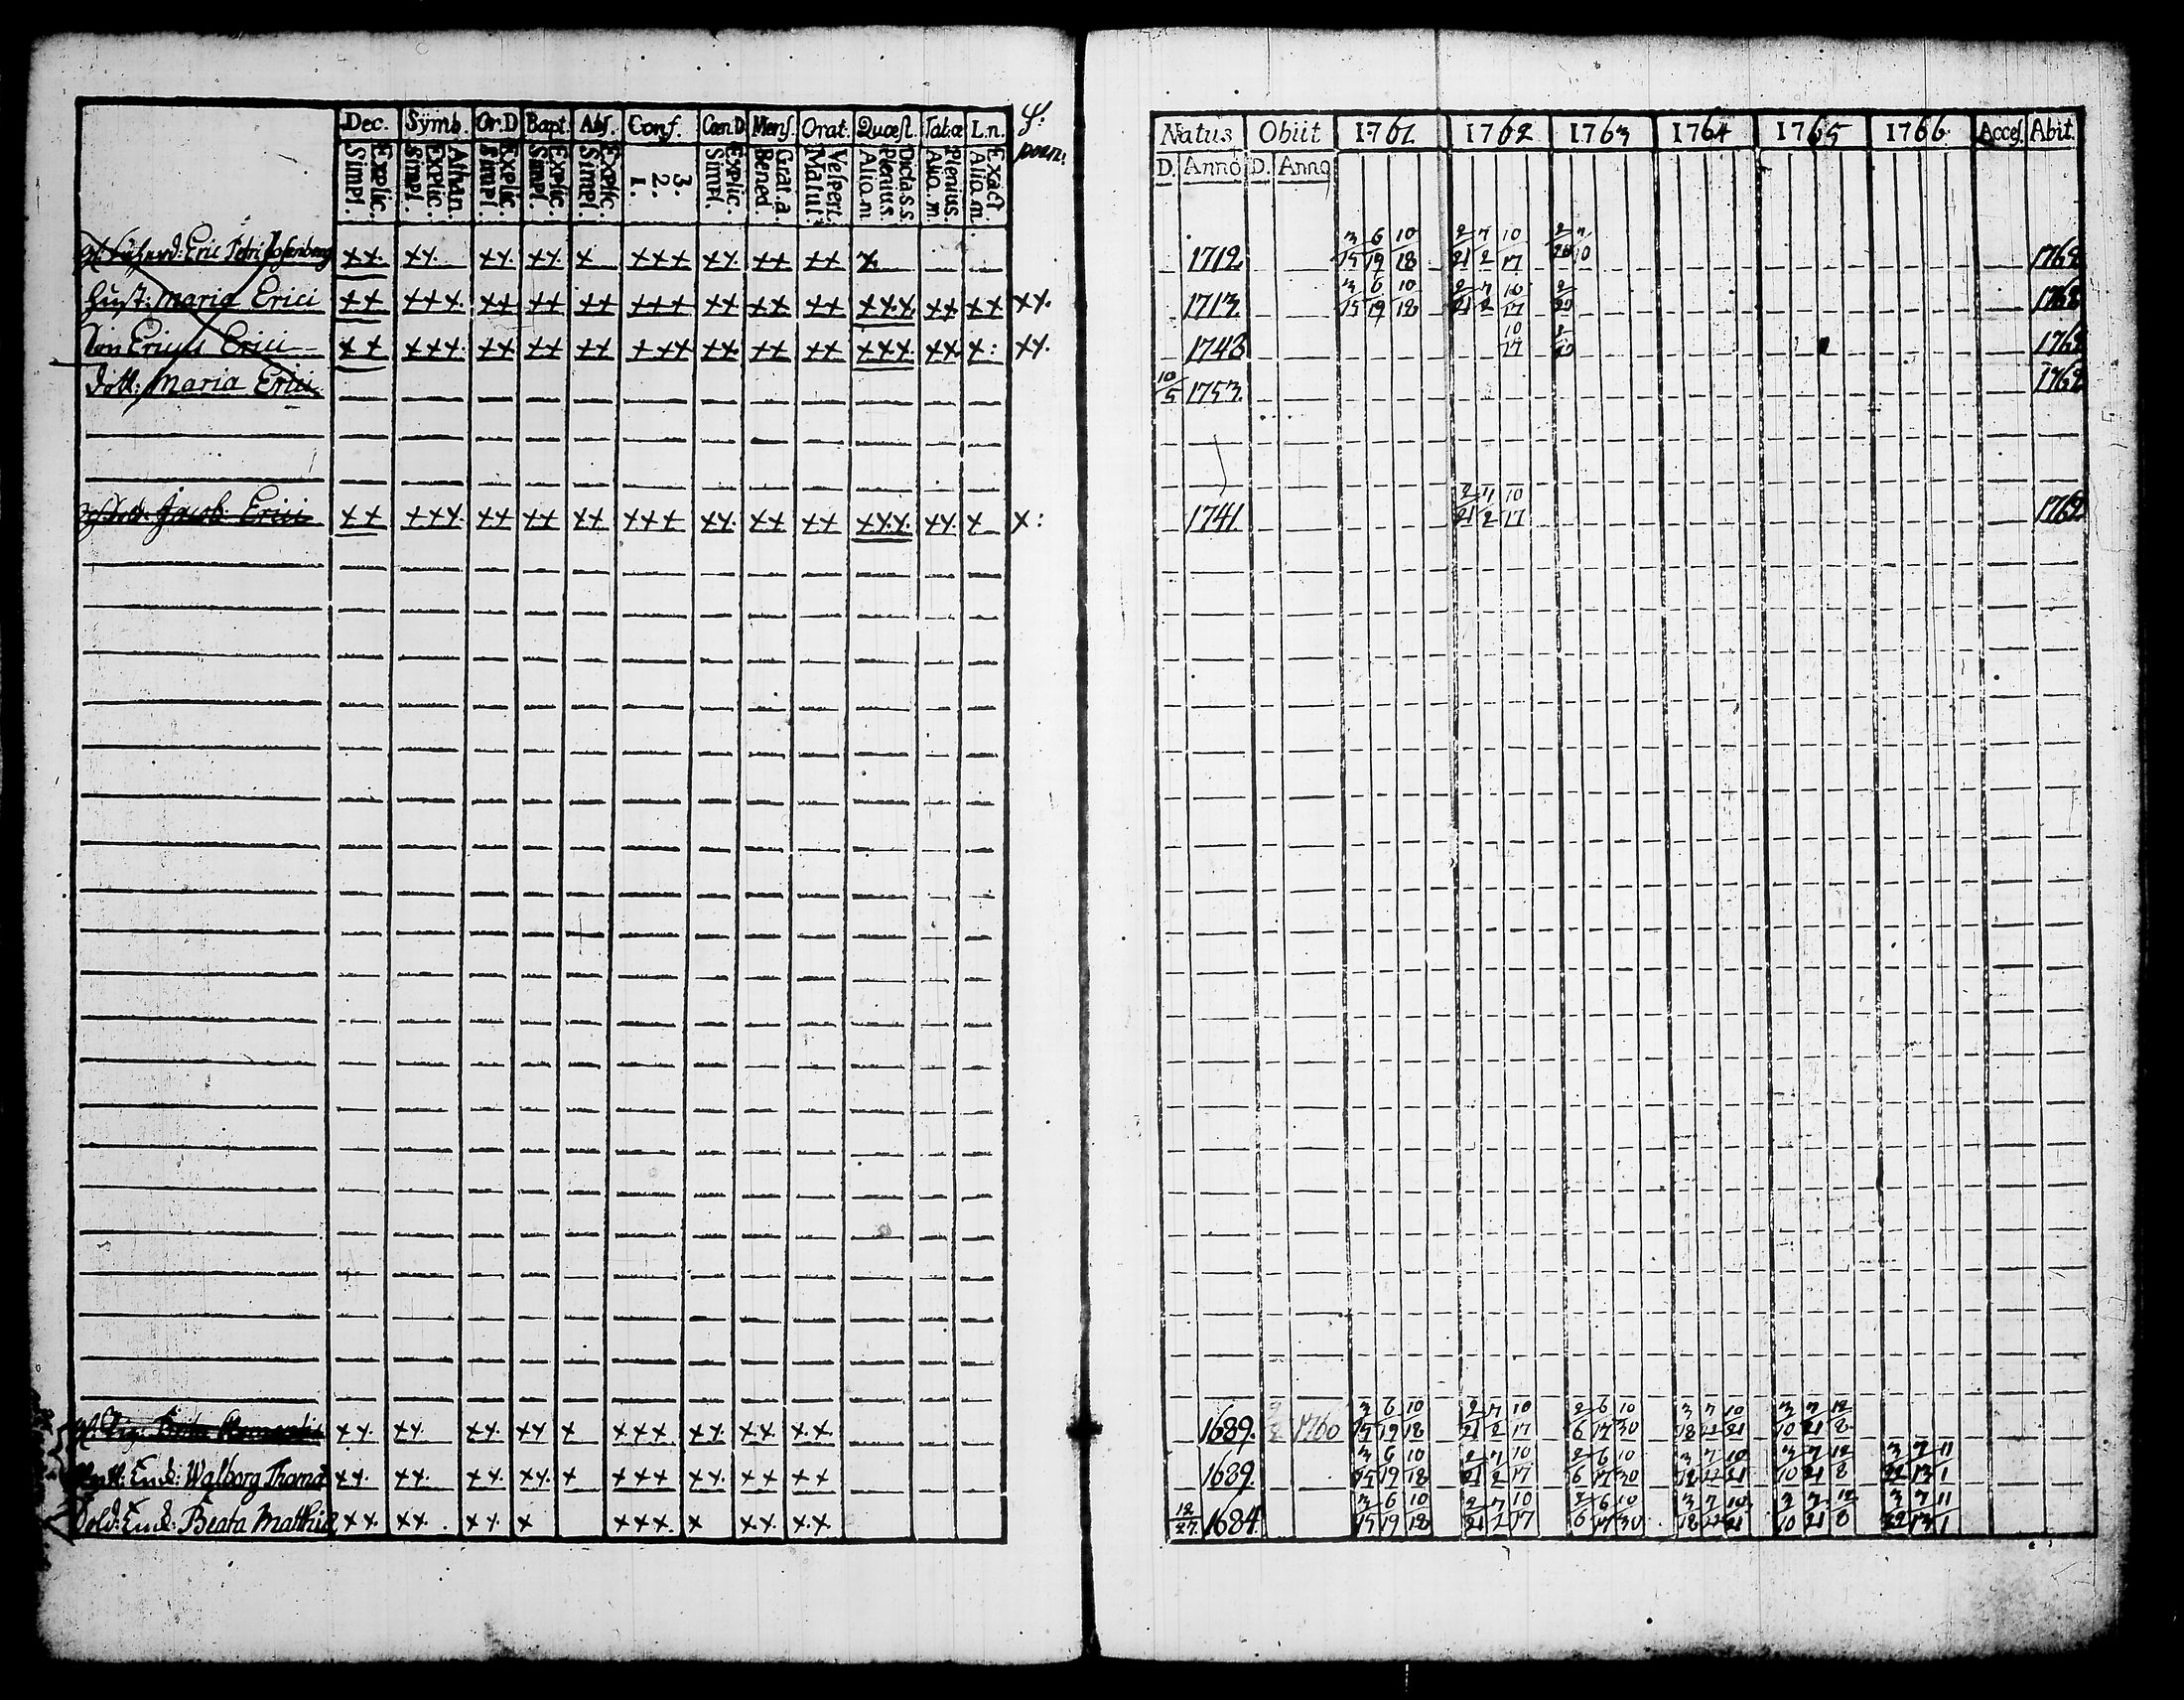 Dec. Symb. Or.D Bapt. Abs. Conf. Cœn.D Mens. Orat. Quæst. Tab.œ L.n. S:
Explic. Simpl. Athan. Explic. Simpl. Explic. Simpl. Explic. Simpl. Explic. Simpl. 3. 2. 1. Explic. Simpl. Grat.a Bened. Vespert. Matut. Dicta.s.s. Plenius. Aliq.m. Plenius. Aliq.m. Exact. Aliq.m. poen:
Eric Petri Rosenberg xx. xx. xx. xx. x xxx xx. xx xx x.
Hust: Maria Erici xx xxx. xx xx xx xxx xx xx xx xxx xx xx xx.
Son Ericus Erici xx xxx. xx xx xx xxx xx xx xx xxx. xx. x: xx.
dott: Maria Erici
Jacob Erici xx xxx. xx xx xx xxx xx. xx xx xx.x. xx. x x:
xx. xx. xx. xx. x xxx xx. xx x.x
Enk: Walborg Thomæ xx. xx. xx. xx. x xxx xx. xx xx
Sold: Enk: Beata Matthiæ xx. xx. xx. x xxx. x x.x. x.x
Natus Obiit 1761 1762 1763 1764 1765 1766 Acces. Abit.
D. Anno D. Anno
1712 3/15 6/19 10/18 2/21 7/2 10/17 2/20 7/10 1763
1713 3/15 6/19 10/18 2/21 7/2 10/17 2/20 1763
1743 10/17 2/20 1763
10/5 1753. 1763
1741. 2/21 7/2 10/17 1762
1689. 1760 3/15 6/19 10/18 2/21 7/2 10/17 2/6 6/17 10/30 3/18 7/22 10/21 3/10 7/21 12/8
1689. 3/15 6/19 10/18 2/21 7/2 10/17 2/6 6/17 10/30 3/18 7/22 10/21 3/10 7/21 12/8 3/22 7/13 11/1
12/27. 1684. 3/15 6/19 10/18 2/21 7/2 10/17 2/6 6/17 10/30 3/18 7/22 10/21 3/10 7/21 12/8 3/22 7/13 11/1